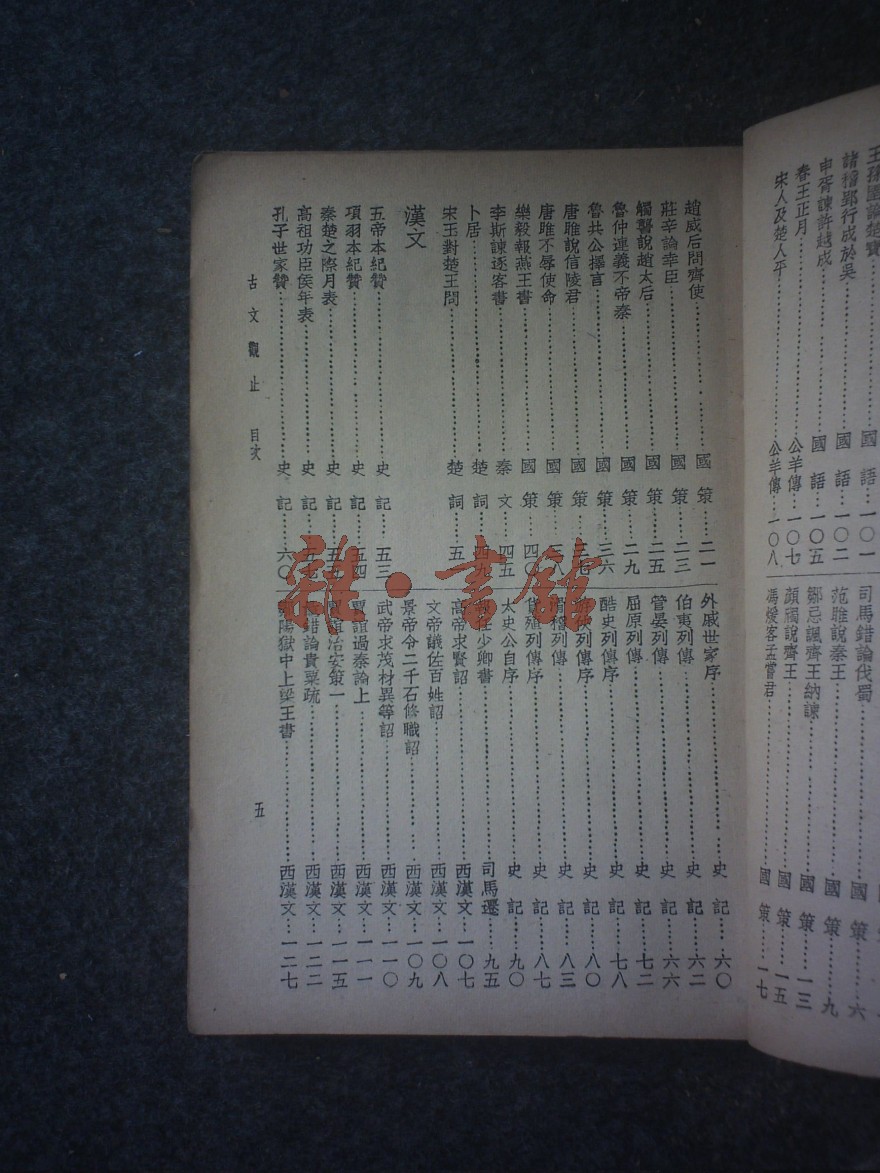 王孫圉論楚寶
諸稽郢行成於吳……國語……一〇一
申胥諫許越成……國語……一〇二
春王正月……國語……一〇五
宋人及楚人平……公羊傳……一〇七
公羊傳……一〇八
司馬錯論伐蜀……國策
范雎說秦王……國策……六
鄒忌諷齊王納諫……國策……九
顏斶說齊王……國策……一三
馮煖客孟嘗君……國策……一五
國策……一七
趙威后問齊使……國策……二一
莊辛論幸臣……國策……二三
觸讋說趙太后……國策……二五
魯仲連義不帝秦……國策……二九
魯共公擇言……國策……三六
唐雎說信陵君……國策……三七
唐雎不辱使命……國策……三八
樂毅報燕王書……國策……四〇
李斯諫逐客書……秦文……四五
卜居……楚詞……四九
宋玉對楚王問……楚詞……五
漢文
五帝本紀贊……史記……五三
項羽本紀贊……史記……五四
秦楚之際月表……史記……五五
高祖功臣侯年表……史記……五七
孔子世家贊……史記……六〇
外戚世家序……史記……六〇
伯夷列傳……史記……六二
管晏列傳……史記……六六
屈原列傳……史記……七二
酷吏列傳序……史記……七八
列傳序……史記……八〇
滑稽列傳……史記……八三
貨殖列傳序……史記……八七
太史公自序……史記……九〇
報任少卿書……司馬遷……九五
高帝求賢詔……西漢文……一〇七
文帝議佐百姓詔……西漢文……一〇八
景帝令二千石修職詔……西漢文……一〇九
武帝求茂材異等詔……西漢文……一一〇
賈誼過秦論上……西漢文……一一一
賈誼治安策一……西漢文……一一五
錯論貴粟疏……西漢文……一二二
陽獄中上梁王書……西漢文……一二七
古文觀止 目次
五
雜·書館